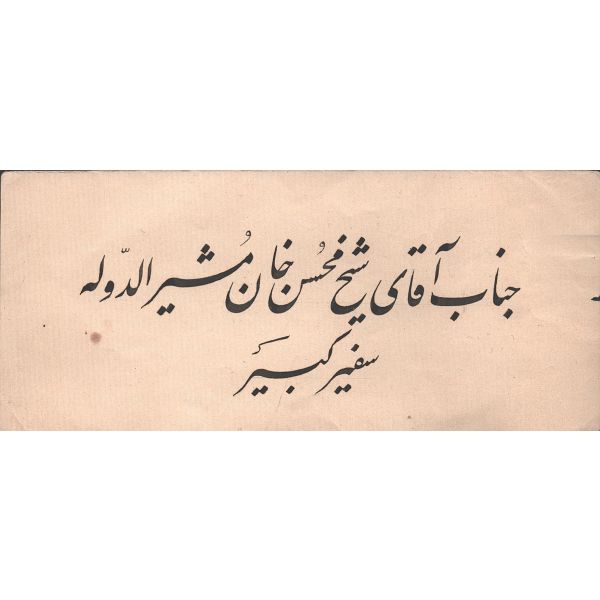 جناب آقای شیخ محسن خان مُشیر الدّوله
سفیر کبیر